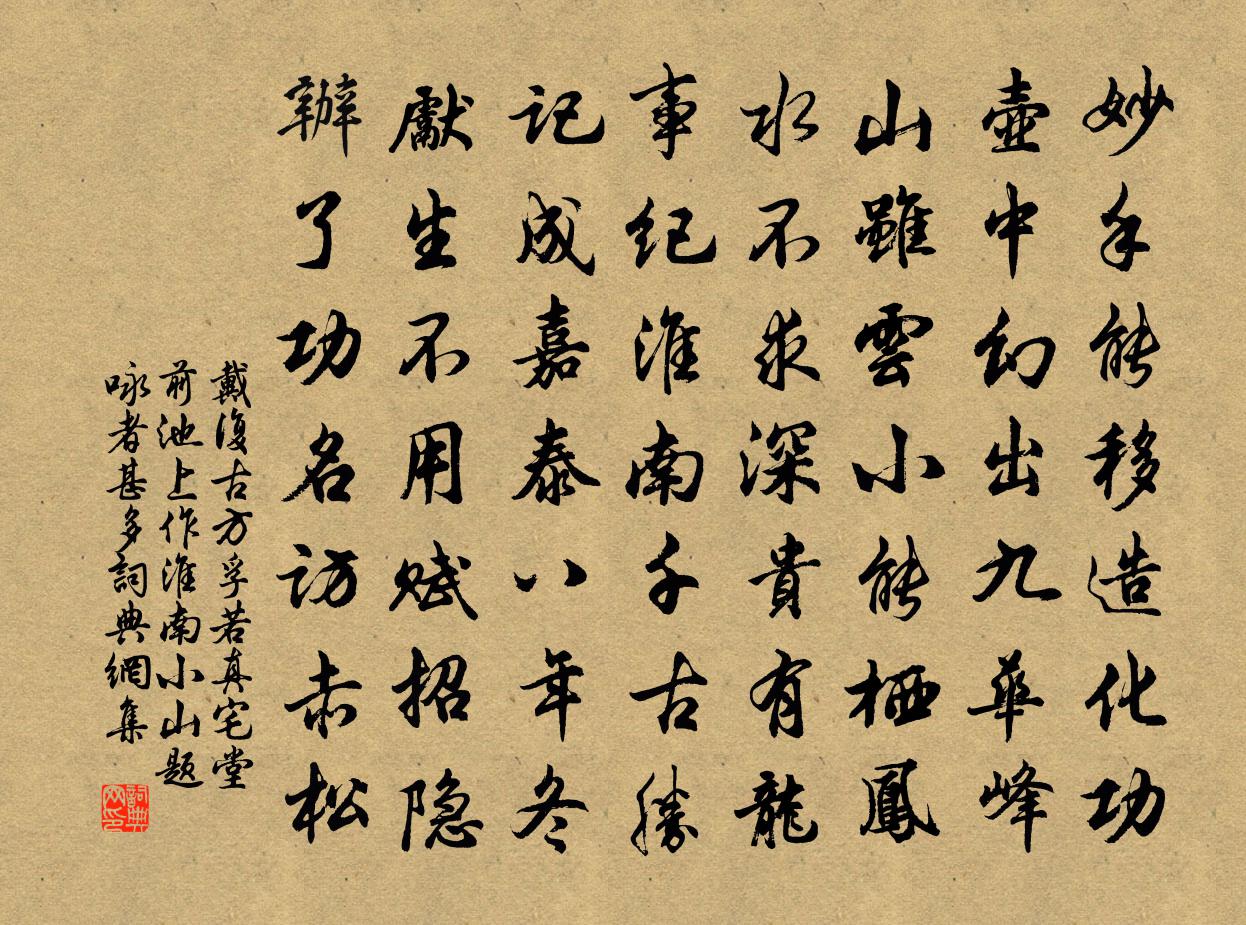 妙手能移造化功
壺中幻出九華峰
山雖雲小能栖鳳
水不求深貴有龍
事紀淮南千古勝
記成嘉泰八年冬
獻生不用賦招隐
辦了功名訪赤松
戴復古方孚若真宅堂
前池上作淮南小山題
咏者甚多詞典網集
詞典网印